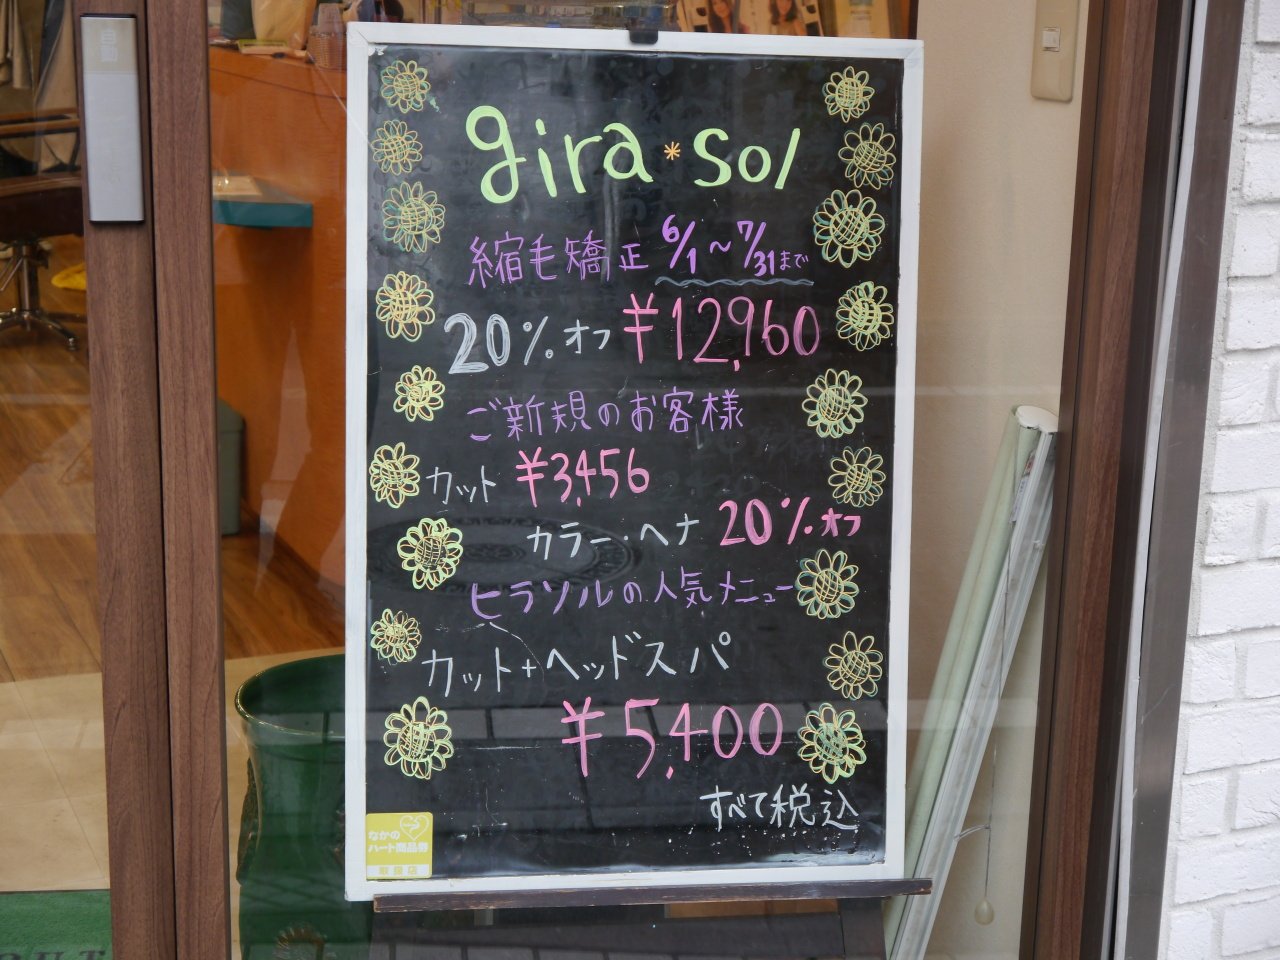 gira*sol
縮毛矯正 6/1〜7/31まで
20%オフ ¥12,960
ご新規のお客様
カット ¥3,456
カラー・ヘナ 20%オフ
ヒラソルの人気メニュー
カット+ヘッドスパ
¥5,400
すべて税込
なかの
ハート商品券
取扱店